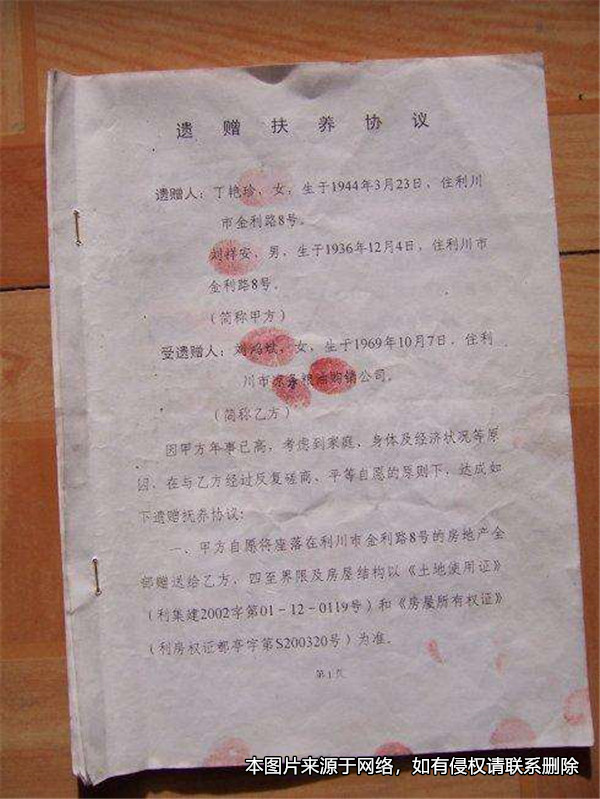 遗赠扶养协议
遗赠人：丁艳珍，女，生于1944年3月23日，住利川
市金利路8号。
刘祥安，男，生于1936年12月4日，住利川市
金利路8号。
（简称甲方）
受遗赠人：刘鸿斌，女，生于1969年10月7日，住利
川市粮油购销公司。
（简称乙方）
因甲方年事已高，考虑到家庭、身体及经济状况等原
因，在与乙方经过反复磋商、平等自愿的原则下，达成如
下遗赠抚养协议：
一、甲方自愿将座落在利川市金利路8号的房地产全
部赠送给乙方，四至界限及房屋结构以《土地使用证》
（利集建2002字第01－12－0119号）和《房屋所有权证》
（利房权证都亭字第S200320号）为准。
第1页
本图片来源于网络，如有侵权请联系删除